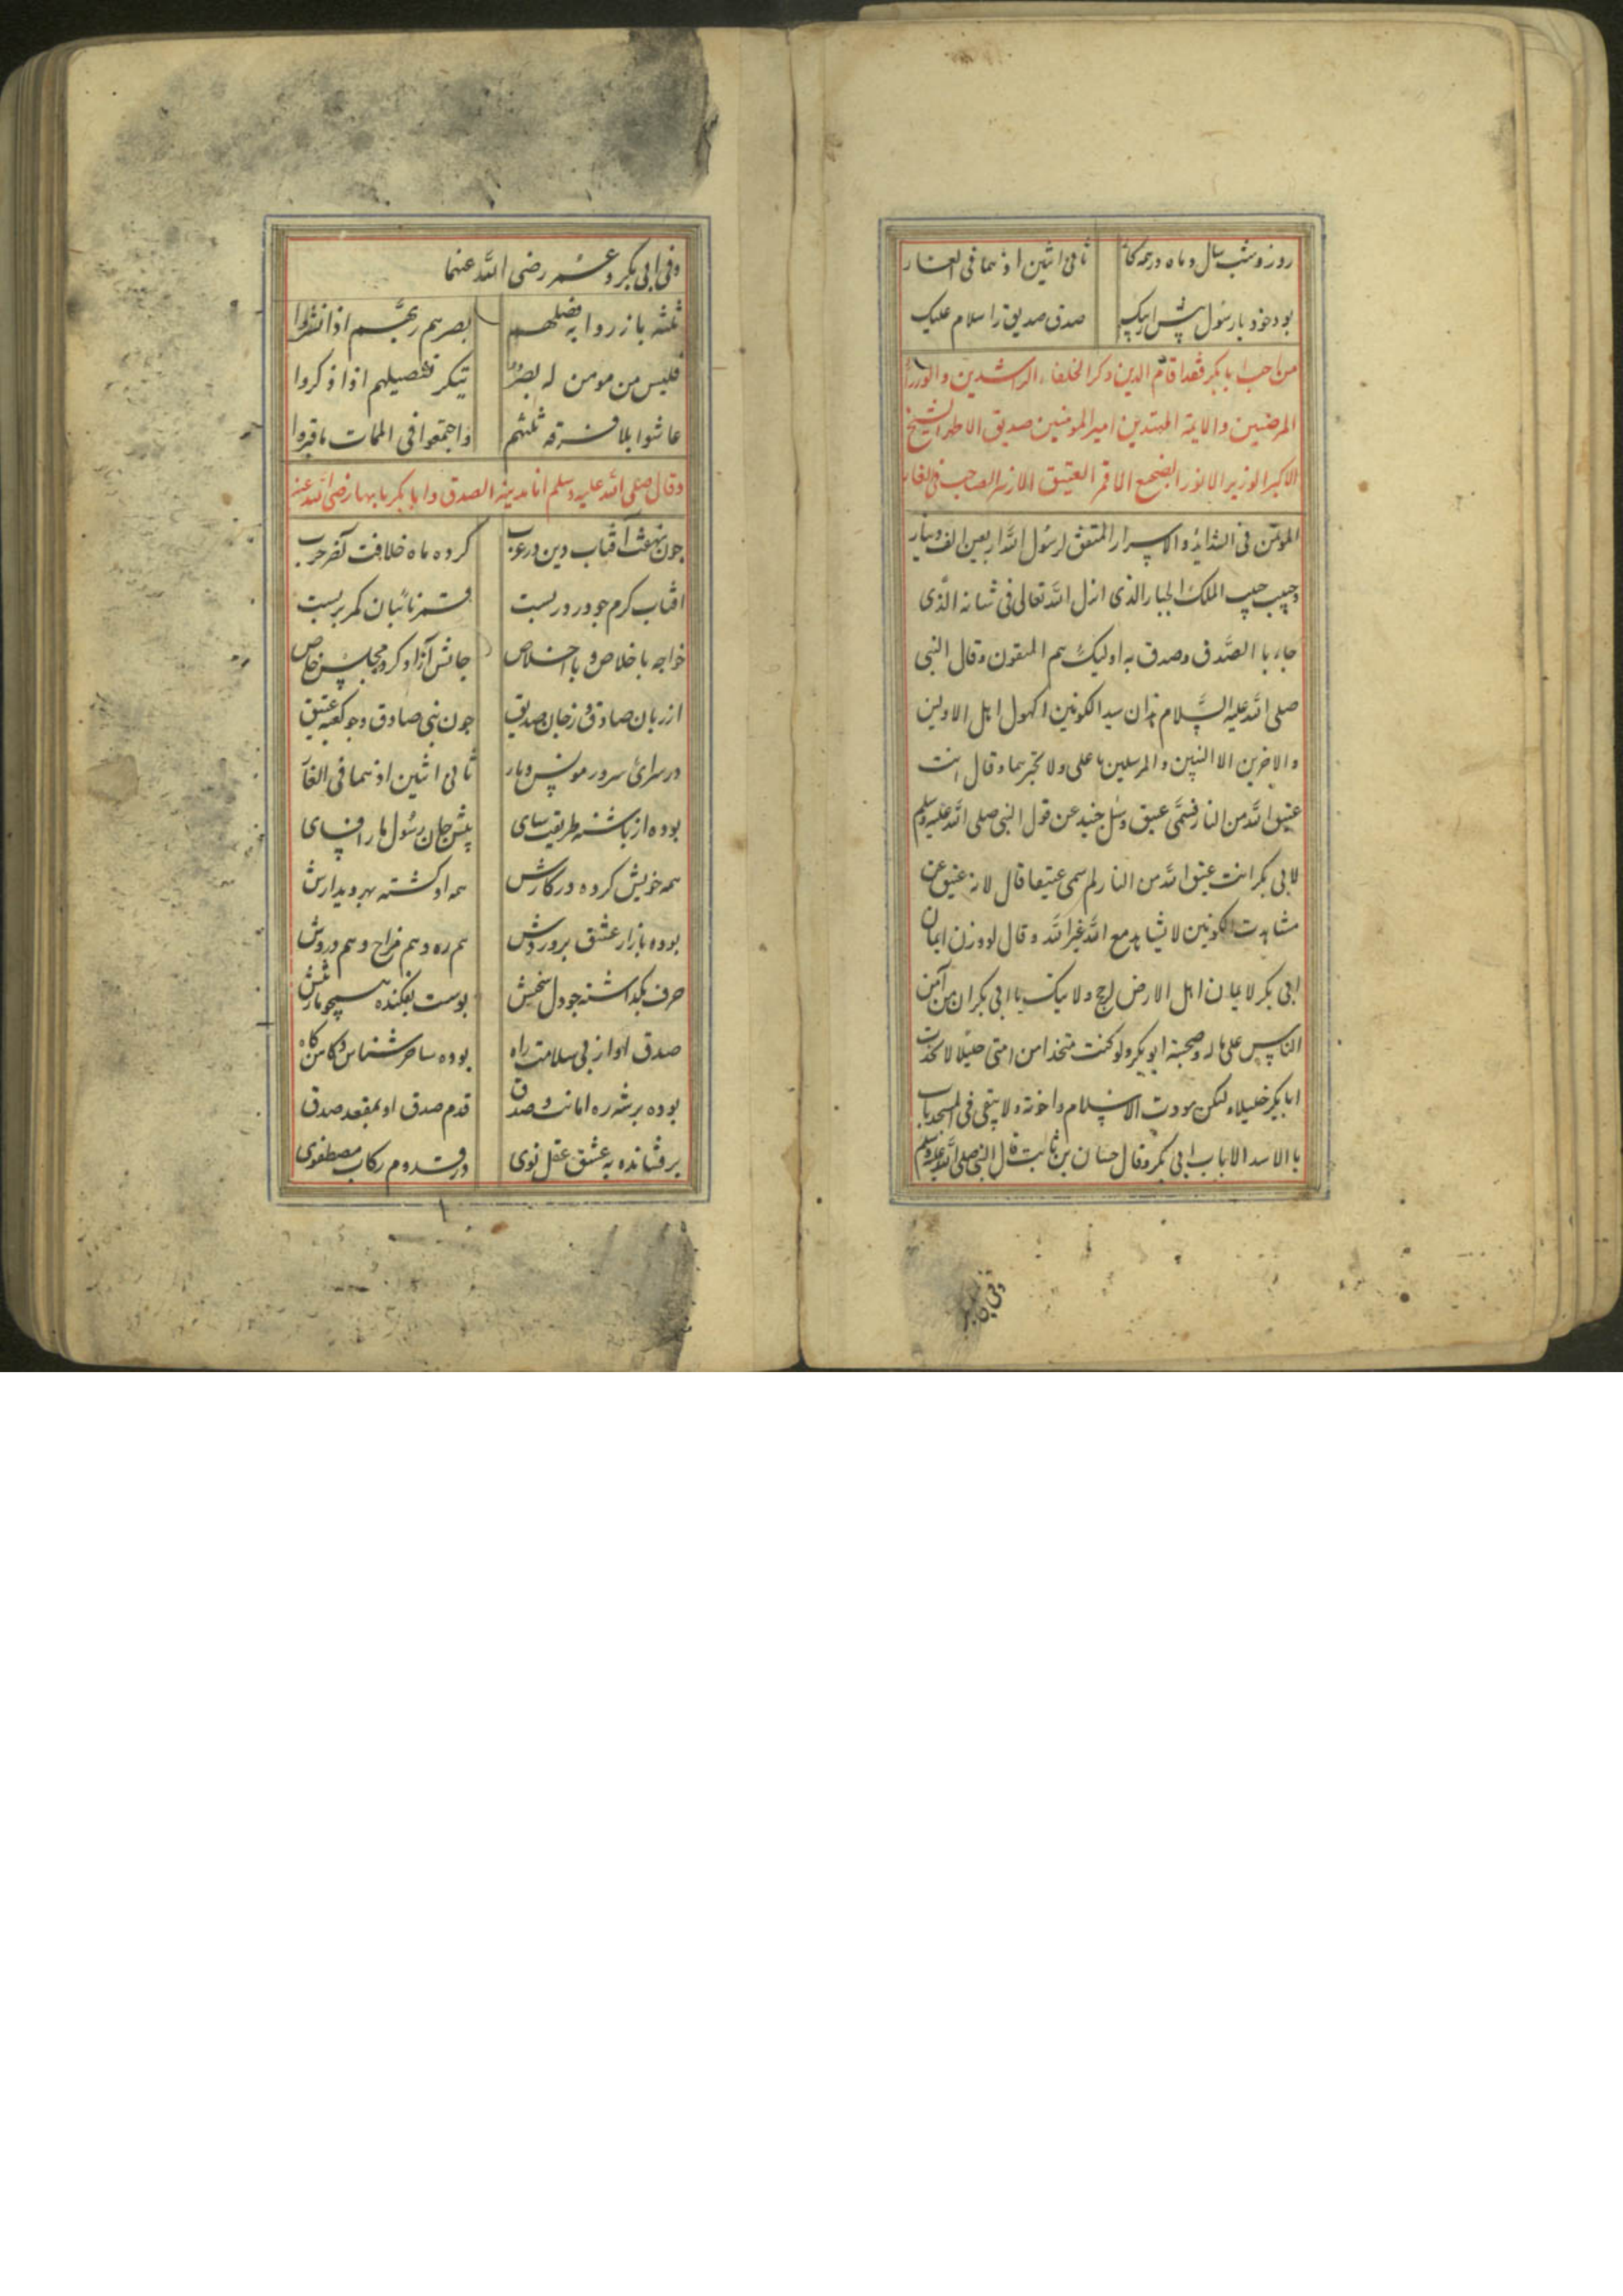 روز و شب سال و ماه در همه کار ثانی اثنین اذ هما فی الغار
بود خود با رسول پیش از پیک صدق صدیق را سلام علیک
من احب ابا بکر فقد اقام الدین ذکر الخلفاء الراشدین والوزراء
المرضیین والایمة المهتدین امیر المومنین صدیق الاطهر الشیخ
الاکبر الوزیر الانور الضجیع الاقمر العتیق الازهر الصاحب فی الغار
الموتمن فی الشداید والاسرار المنفق لرسول الله اربعین الف دینار
وحبیب حبیب الملک الجبار الذی انزل الله تعالی فی شانه الذی
جاء با الصدق وصدق به اولیک هم المتقون وقال النبی
صلی الله علیه السلام هذان سید الکونین اکهول اهل الاولین
والاخرین الا النبیین والمرسلین یا علی ولا تخبرهما وقال انت
عتیق الله من النار فسمی عتیق وسئل جنید عن قول النبی صلی الله علیه وسلم
لابی بکر انت عتیق الله من النار لم سمی عتیقا قال لانه عتیق عن
مشاهدت الکونین لا یشاهد مع الله غیر الله وقال لو وزن ایمان
ابی بکر لایمان اهل الارض لرجح ولا تبک یا ابی بکر ان من آمن
الناس علی ماله وصحبته ابو بکر ولو کنت متخذا من امتی خلیلا لاتخذت
ابا بکر خلیلا ولکن مودت الاسلام واخوته ولا یبقی فی المسجد باب
با الا سد الا باب ابی بکر وقال حسان بن ثابت قال النبی صلی الله علیه وسلم
وفی ابی بکر
وفی ابی بکر و عمر رضی الله عنهما
ثلثه بازروا بفضلهم بصرهم ربهم اذا نشروا
فلیس من مومن له بصر ینکر تفضیلهم اذا ذکروا
عاشوا بلا فرقه ثلثهم واجتمعوا فی الممات ما قبروا
وقال صلی الله علیه وسلم انا مدینه الصدق وابا بکر بابها رضی الله عنه
چون نهفت آفتاب دین در غرب کرده ماه خلافت
افتاب کرم چو در در بست قمر نائبان کمر بربست
خواجه با خلاص و با اخلاص جانش آزاد کرد مجلس خاص
از زبان صادق و ز جان صدیق چون نبی صادق و چو کعبه عتیق
در سرای سرور مونس و یار ثانی اثنین اذ هما فی الغار
بوده از پاشنه طریقت سای پیش جان رسول مار افسای
همه خویش کرده در کارش همه او کشته بهر دیدارش
بوده بازار عشق بر دردش هم ره و هم مزاج و هم دردش
حرف بگذاشته چو دل سخنش پوست بفکنده همچو مار تنش
صدق او از پی سلامت راه بوده ساحر شناس و کاهن کاه
بوده بر شه ره امانت و صدق قدم صدق او بمقعد صدق
برفشانده به عشق عقل نوی در قدوم رکاب مصطفوی